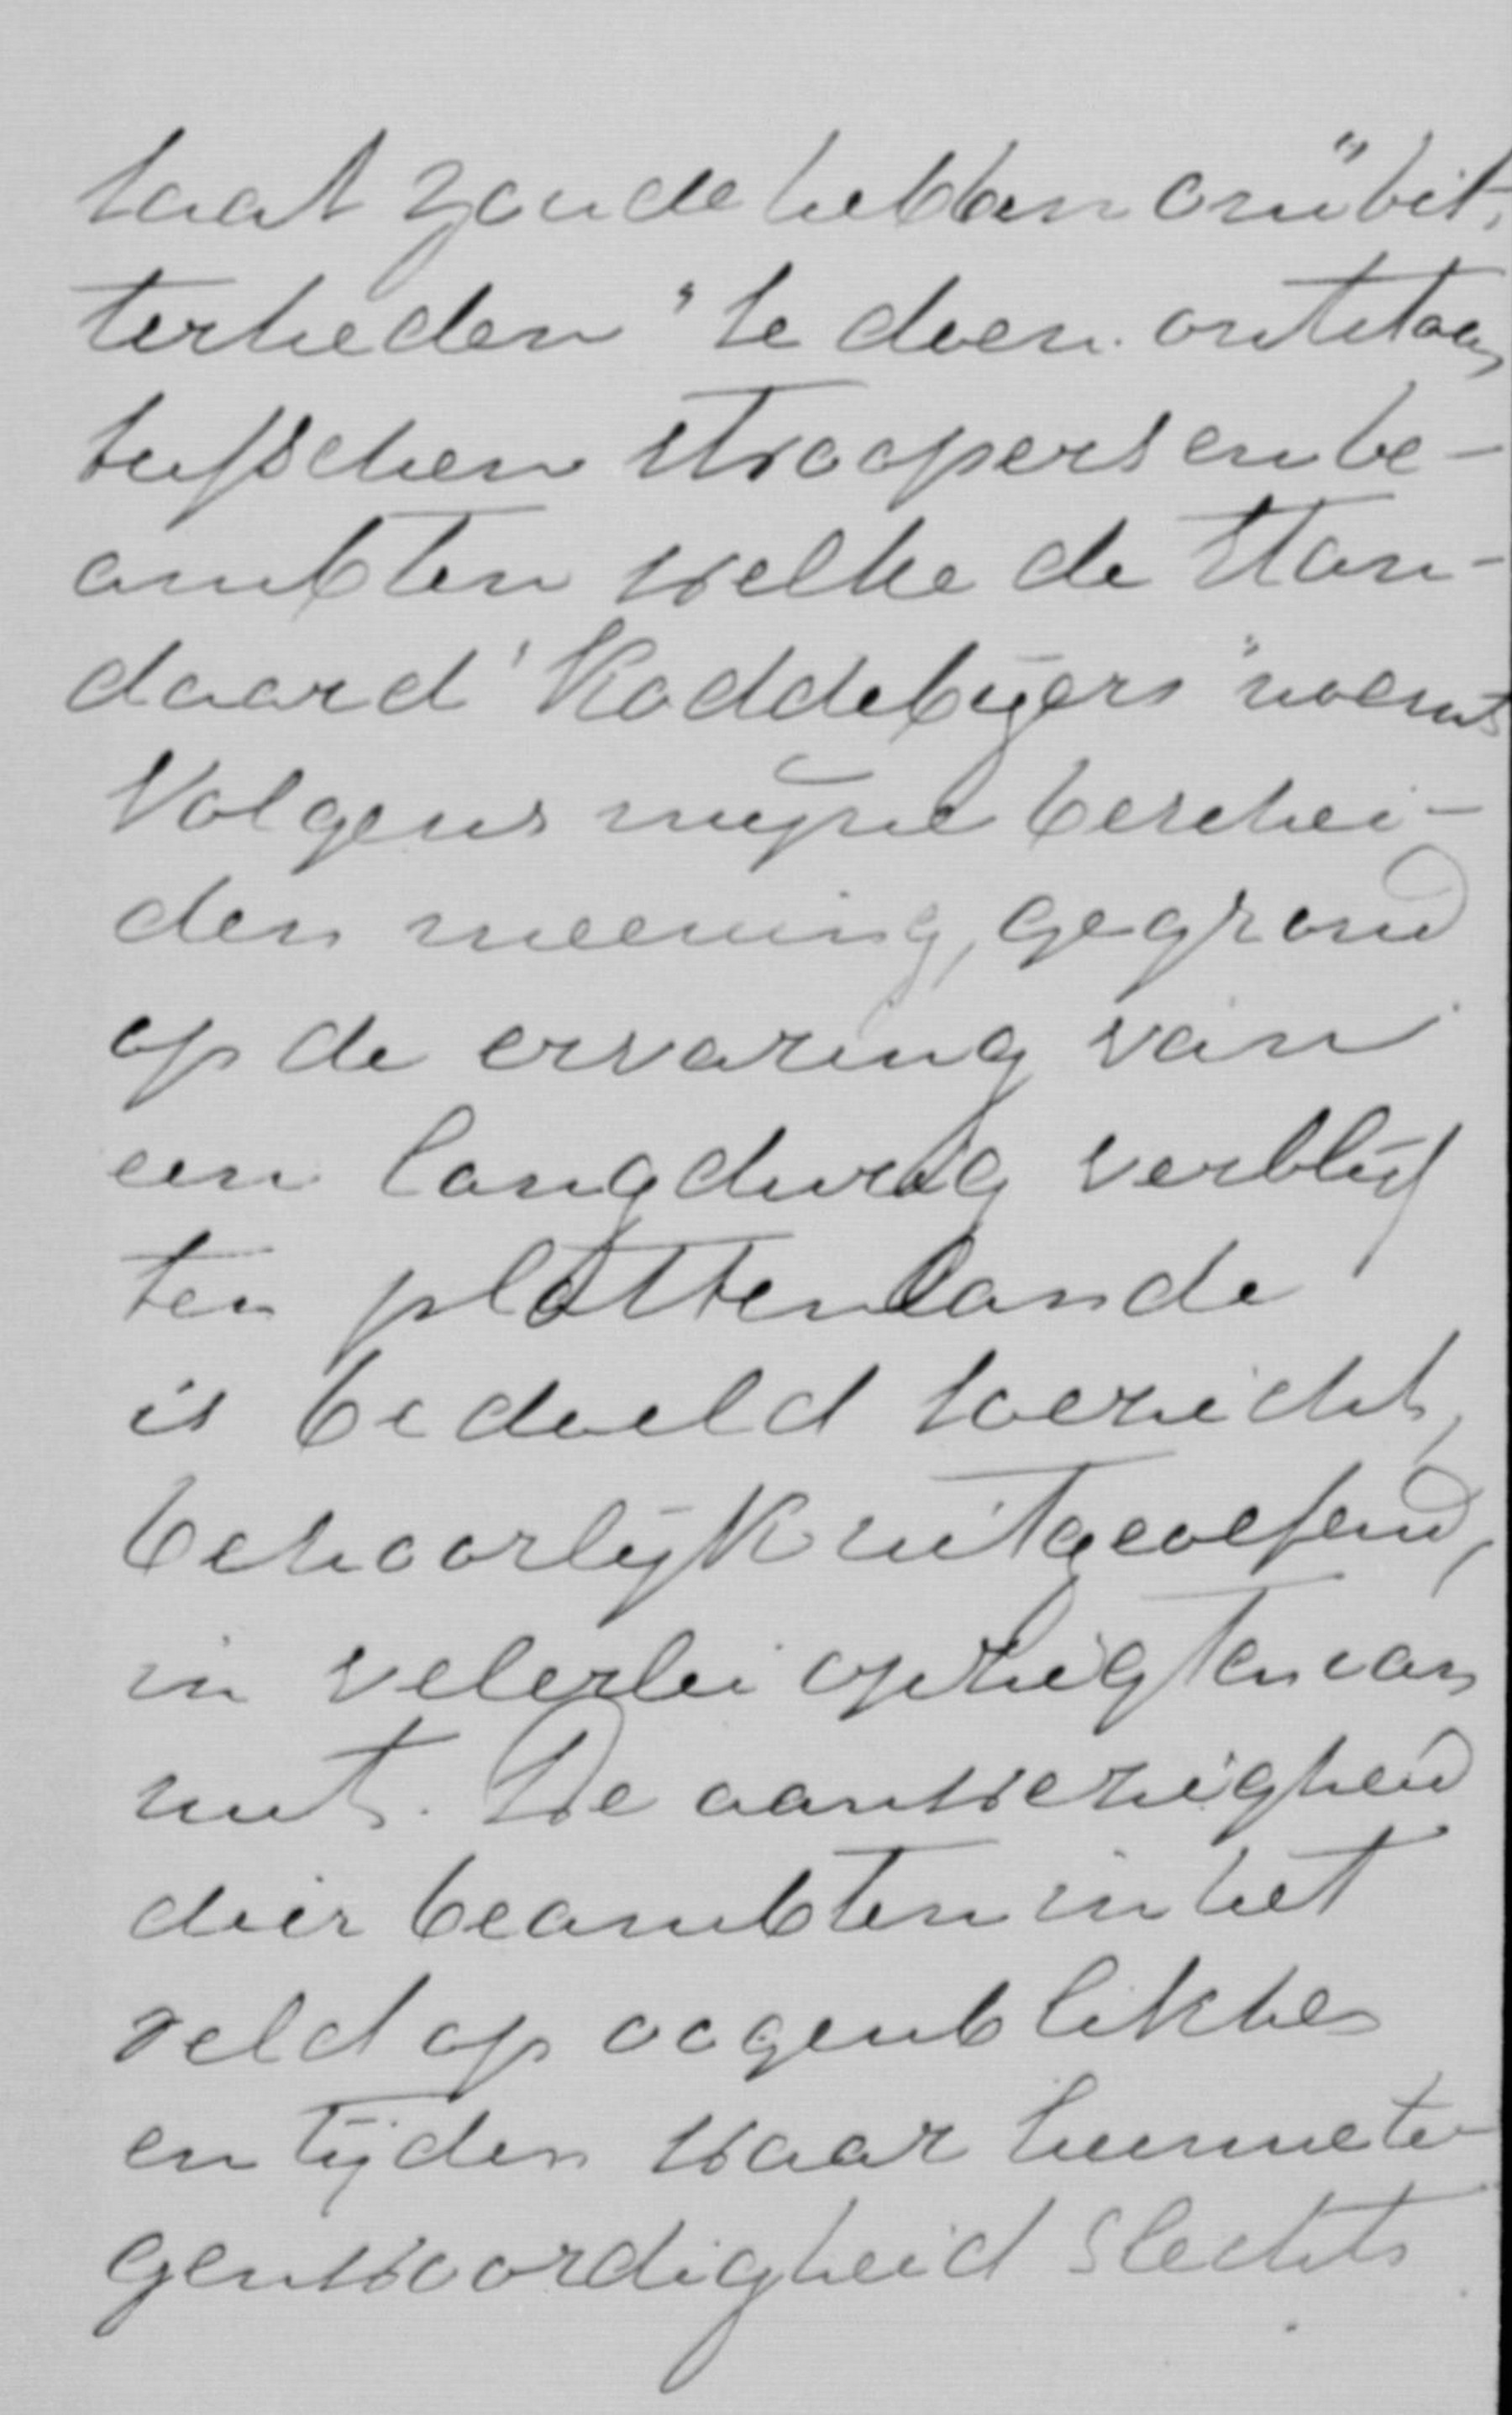 taat zoude hebben om "bit-
terheden" te doen ontstaan
tusschen stroopers en be-
ambten welke de Stan-
daard "Koddebeijers" noemt
Volgens mijne beschei-
den meening, gegrond
op de ervaring van
een langdurig verblijf
ten plattenlande
is bedoeld toezicht,
behoorlijk uitgeoefend,
in velerlei opzigten van
nut. De aanwezigheid
dier beambten in het
veld op oogenblikken
en tijden waar hunne te-
genwoordigheid slechts